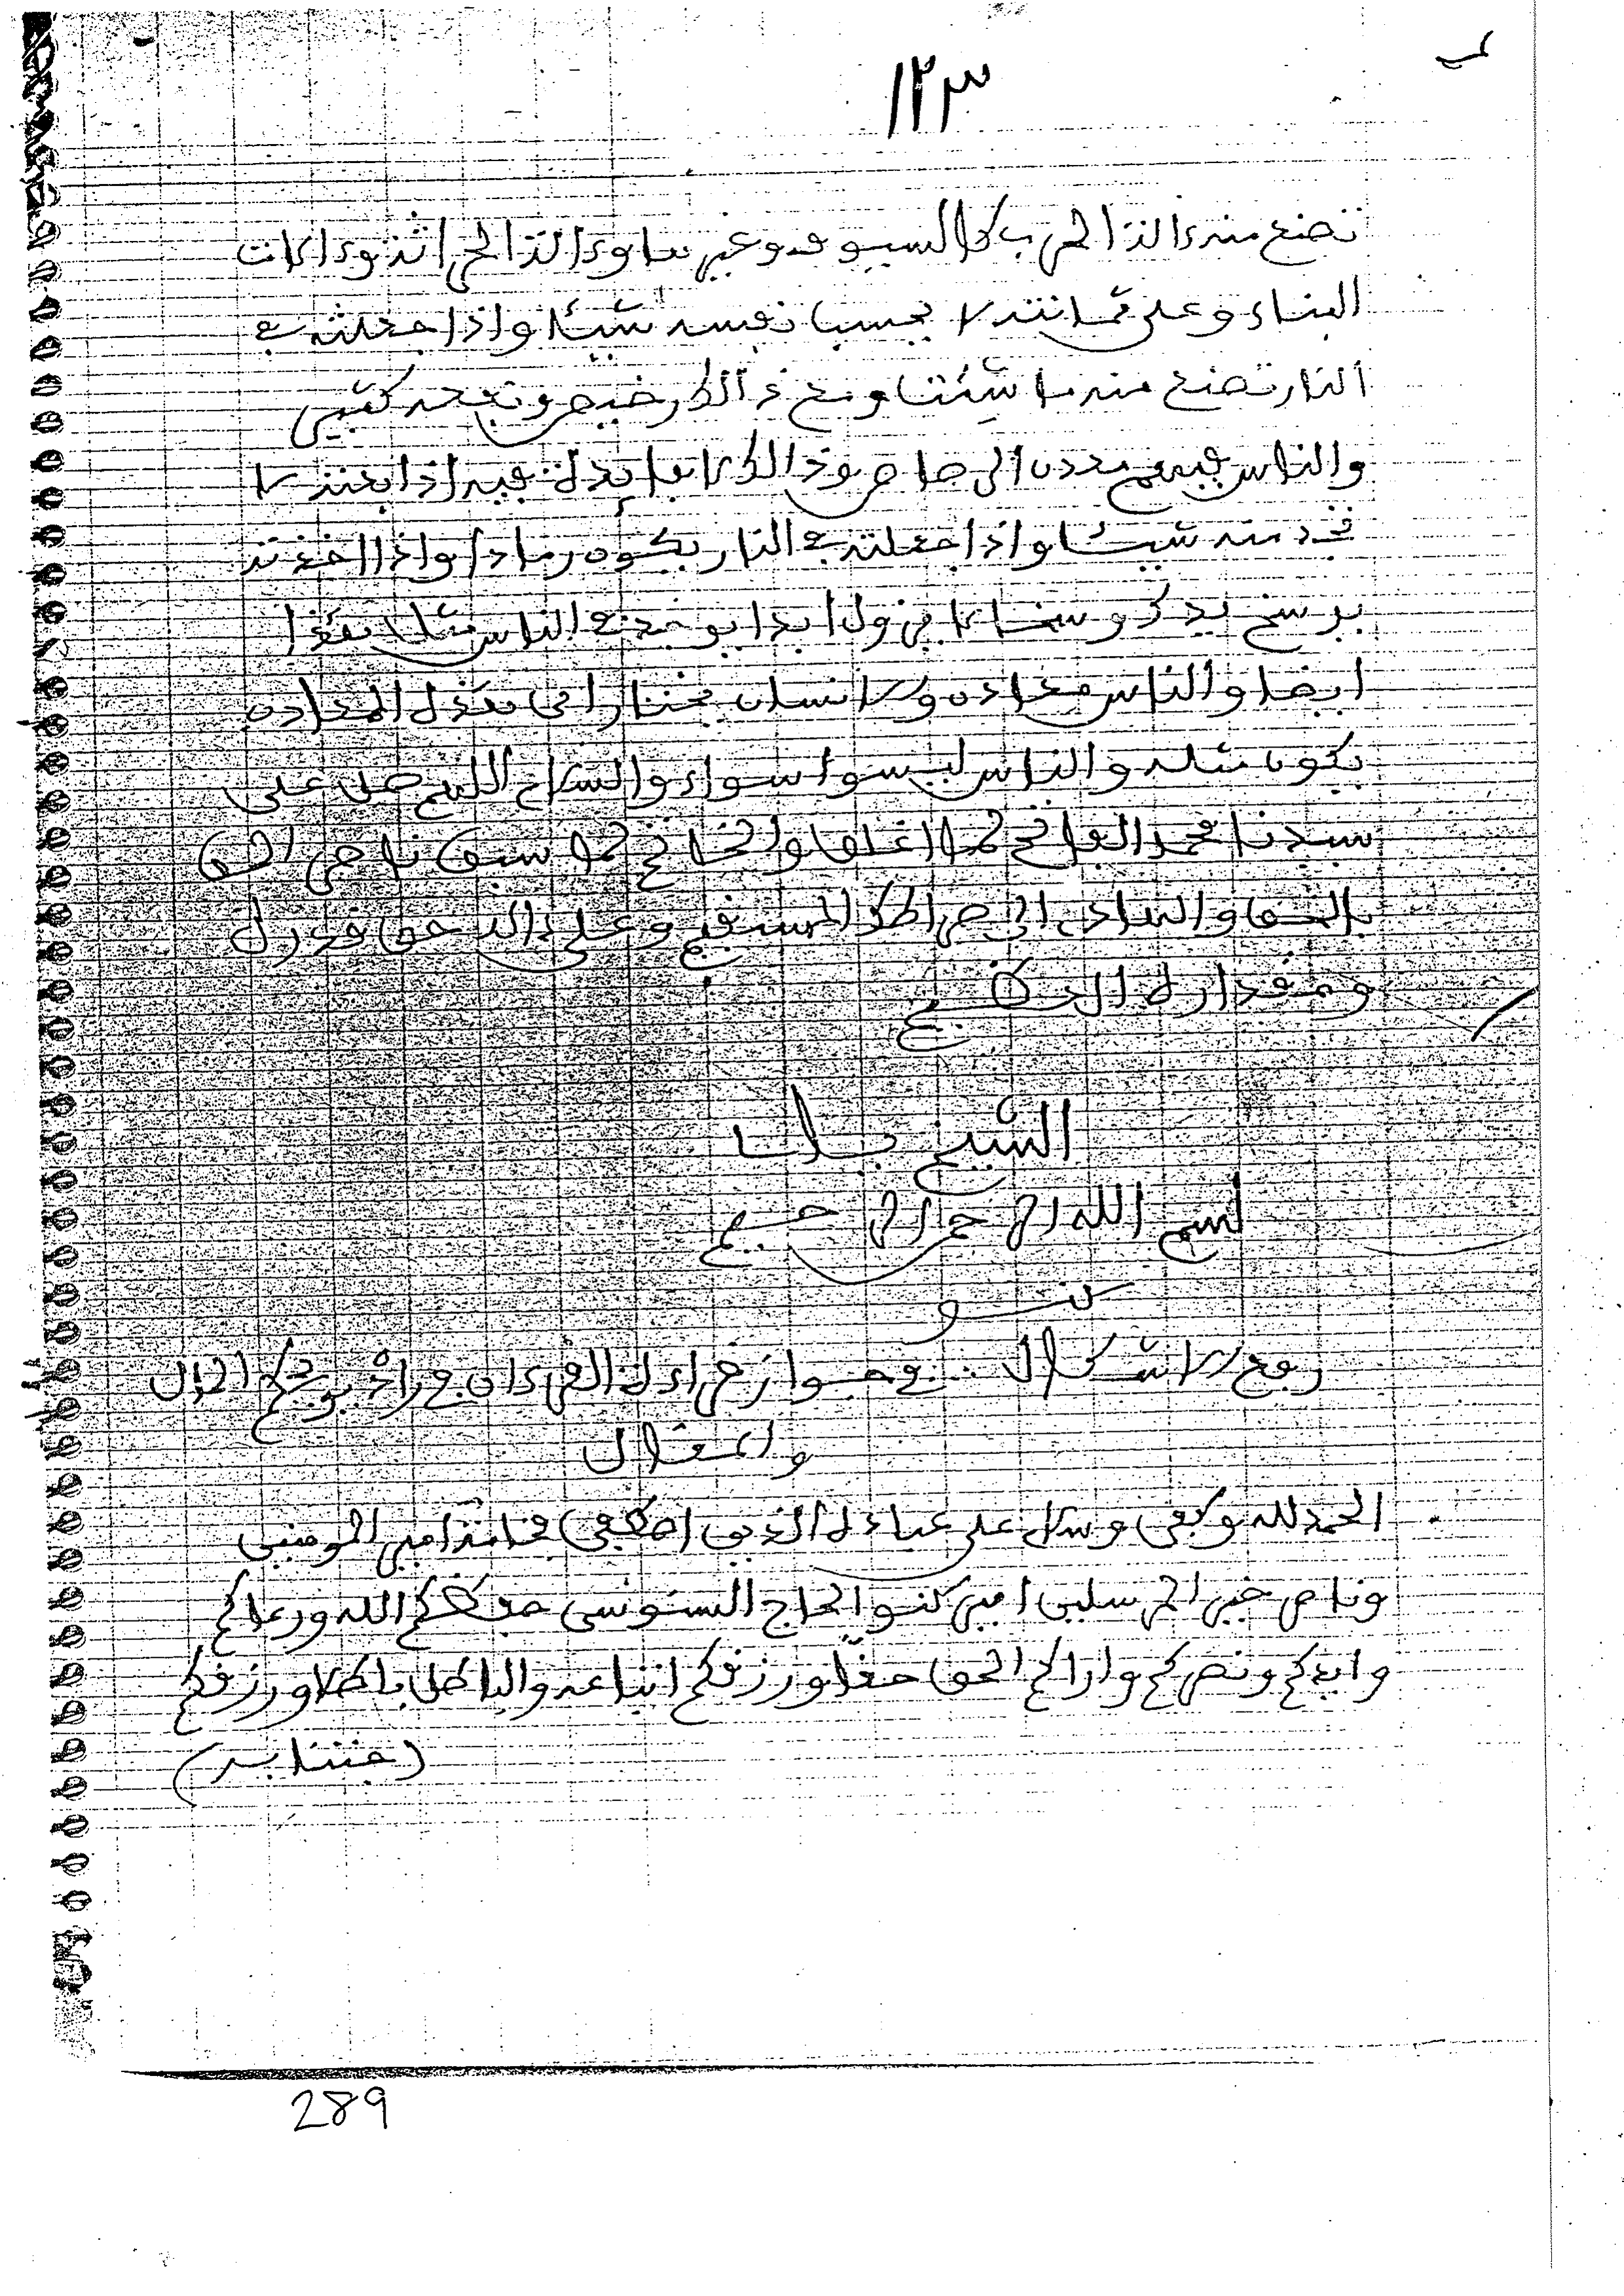 ١٢٣
تصنع منه ءالة الحرب كالسيوف وغيرها وءالة الحراثة وءالات
البناء وعلى قمانته لا يحسب نفسه شيئا واذا جعلته في
النار تصنع منه ما شئت ومع ذالك رخيص ونفعه كثير
والناس فيهم معدن الرصاص وذالك لا فايدة فيه اذا بعته لا
تجد منه شيئا واذا جعلته في النار يكون رمادا واذا اخذته
يوسخ يدك وسخا لا يزول ابدا يوجد في الناس مثل هذا
ايضا والناس معادن والانسان يختار اي هذه المعادن
يكون مثله والناس ليسوا سواء والسلام اللهم صل على
سيدنا محمد الفاتح لما اغلق والخاتم لما سبق ناصر الحق
بالحق والهادى الى صراطك المستقيم وعلى ءاله حق قدره
ومقداره العظيم
الشيخ
بسم الله الرحمن الرحيم
كنو
رفع الاشكال .. في جواز قراءة القرءان في راديو بحكم الحال
والمقال
الحمد لله وكفى وسلام على عباده الذين اصطفى فخامة امير المومنين
وناصر خير المرسلين امير كنو الحاج السنوسى حفظكم الله ورعاكم
وايدكم ونصركم واراكم الحق حقا ورزقكم اتباعه والباطل باطلا ورزقكم
(جتنابه)
289